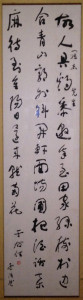 先生
故人具雞黍邀我至田家綠樹村邊
合青山郭外斜開軒面場圃把酒話桑
麻待到重陽日還來就菊花
于右任